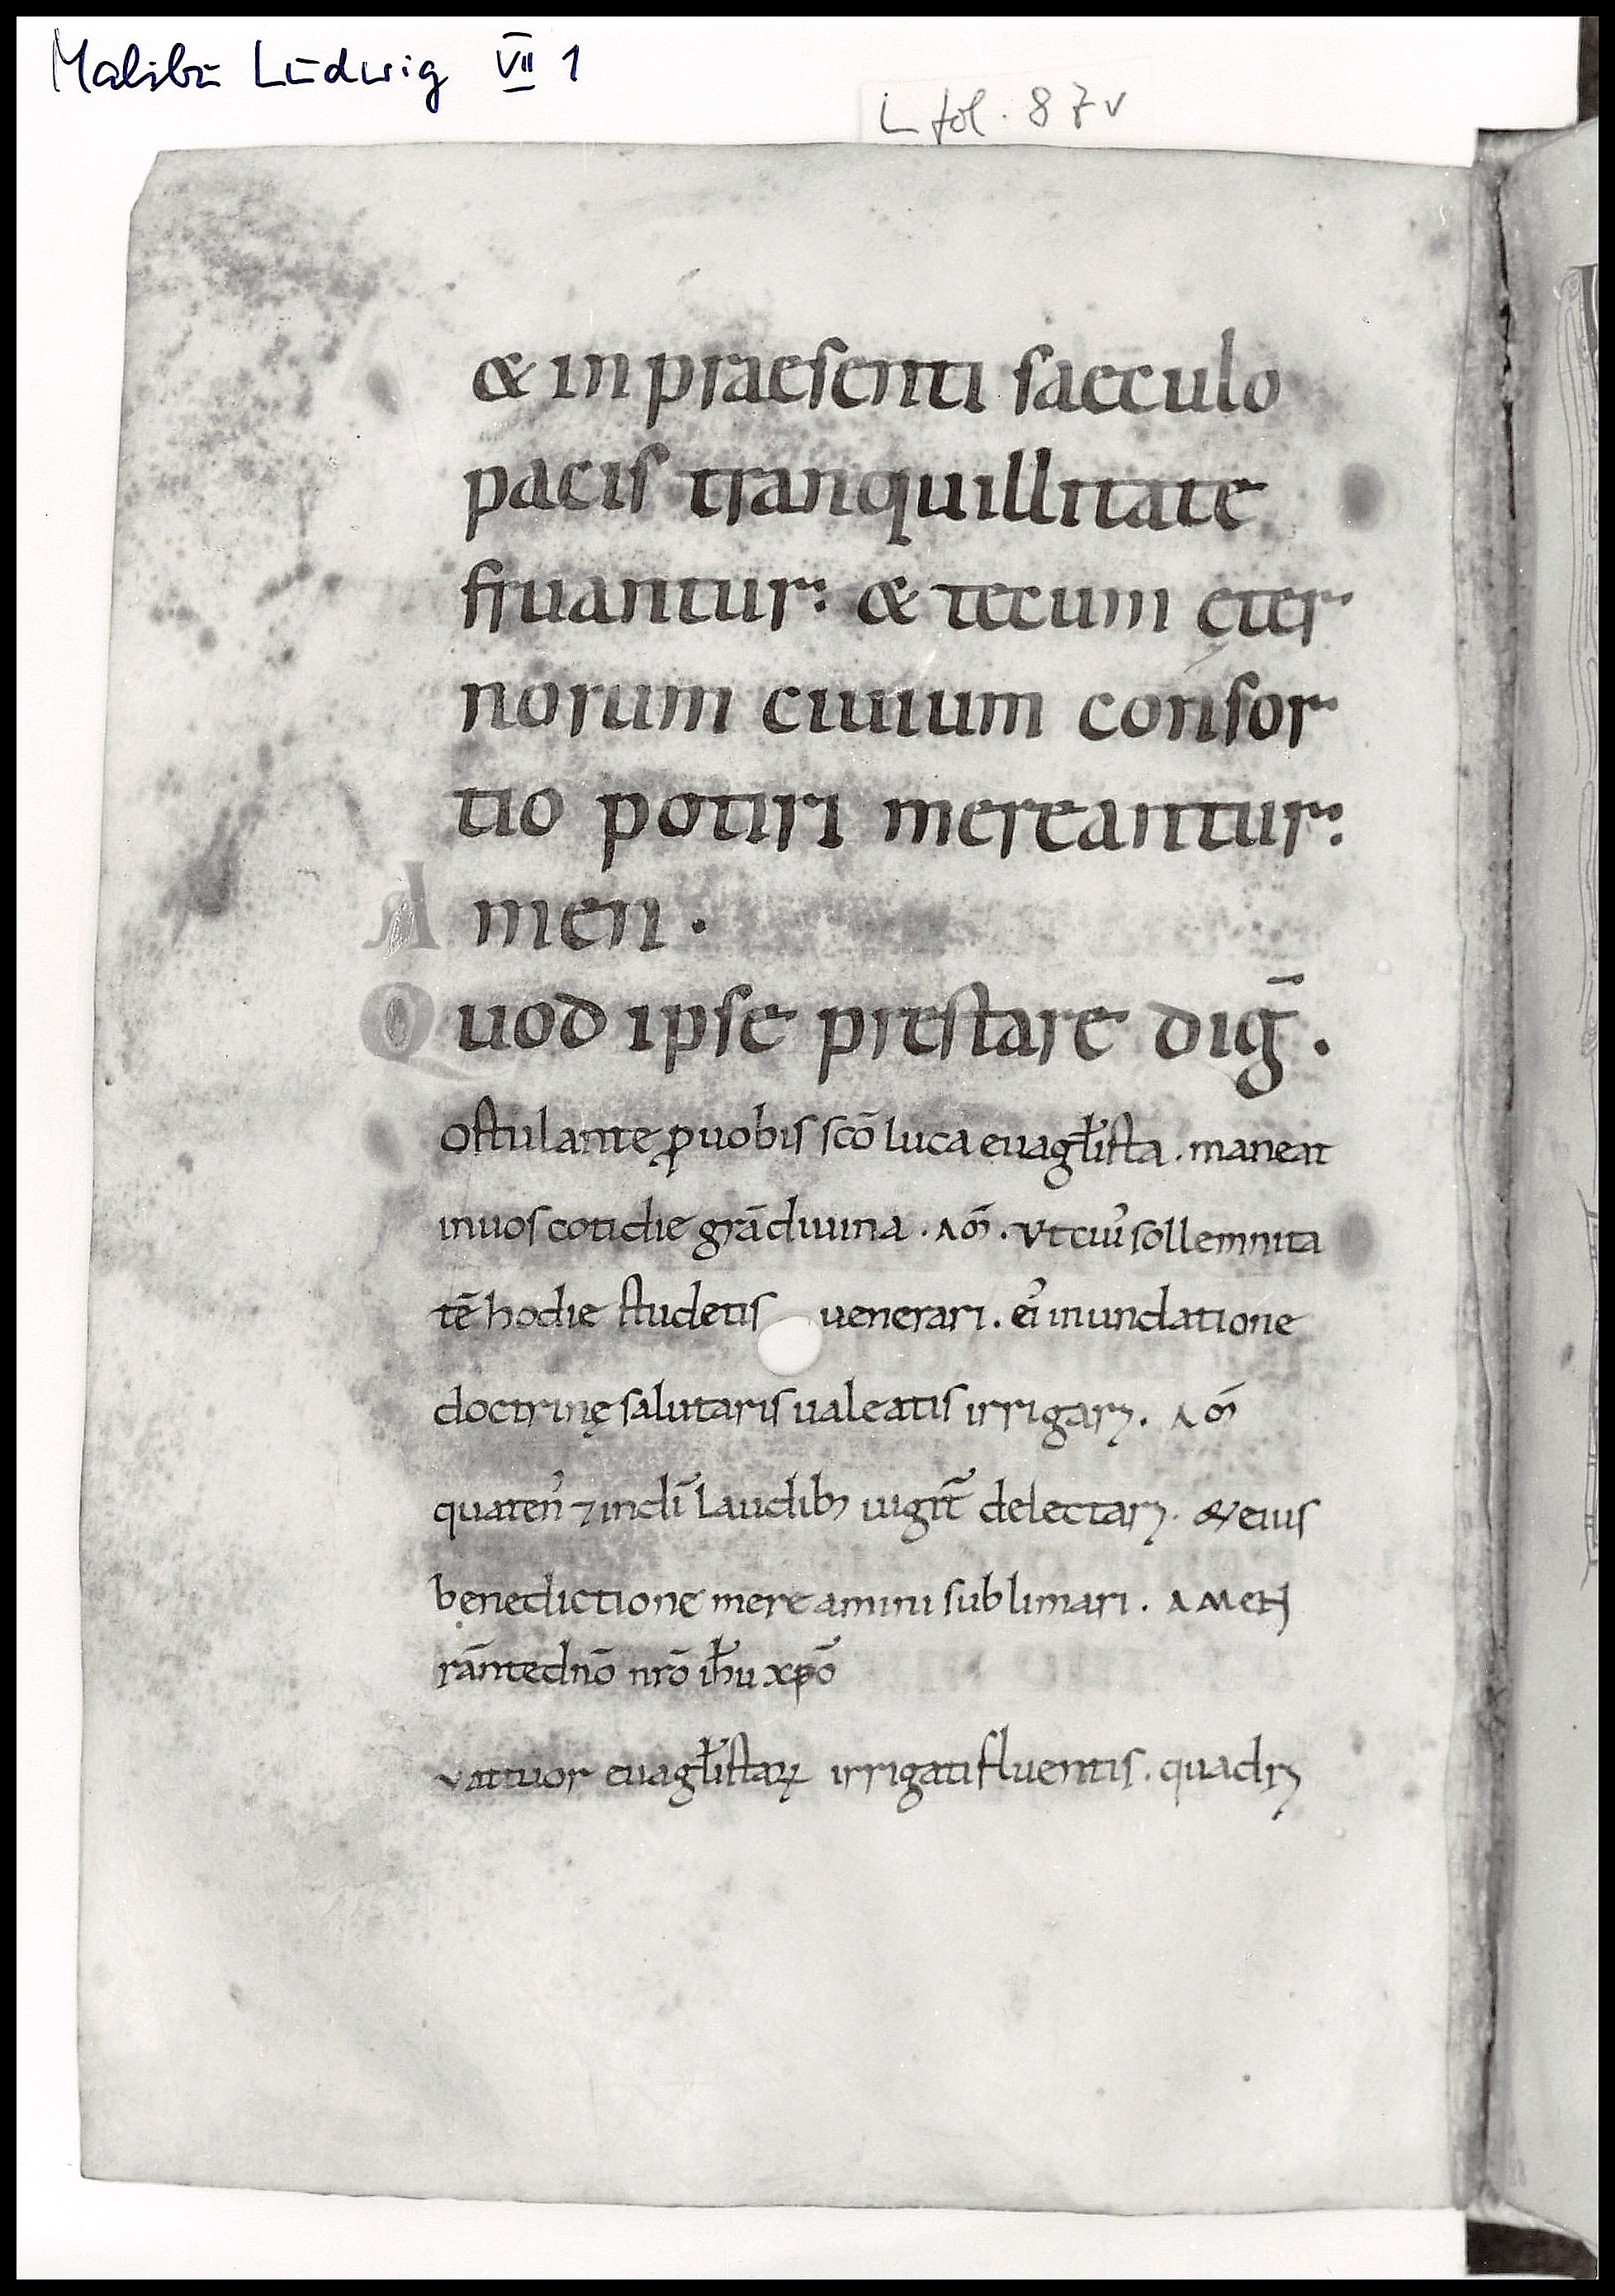 Malibu Ludwig VII 1
L fol. 87v
& in praesenti saeculo
pacis tranquillitate
fruantur: & tecum ęter
norum ciuium consor
tio potiri mereantur:
Amen.
Quod ipse prestare diḡ.
ostulante ꝓuobis scō luca euagl̄ista. maneat
inuos cotidie grā diuina. am̄. Vt cuī sollemnita
tē hodie studetis uenerari. eī inundatione
doctrinę salutaris ualeatis irrigarꝫ. am̄
quaten̄ ⁊ indī laudibꝫ uigīt delectarꝫ. & eius
benedictione mereamini sublimari. AMEN
rāntednō nrō ih̄u xpō
vattuor euagl̄istaꝝ irrigati fluentis. quadrꝫ